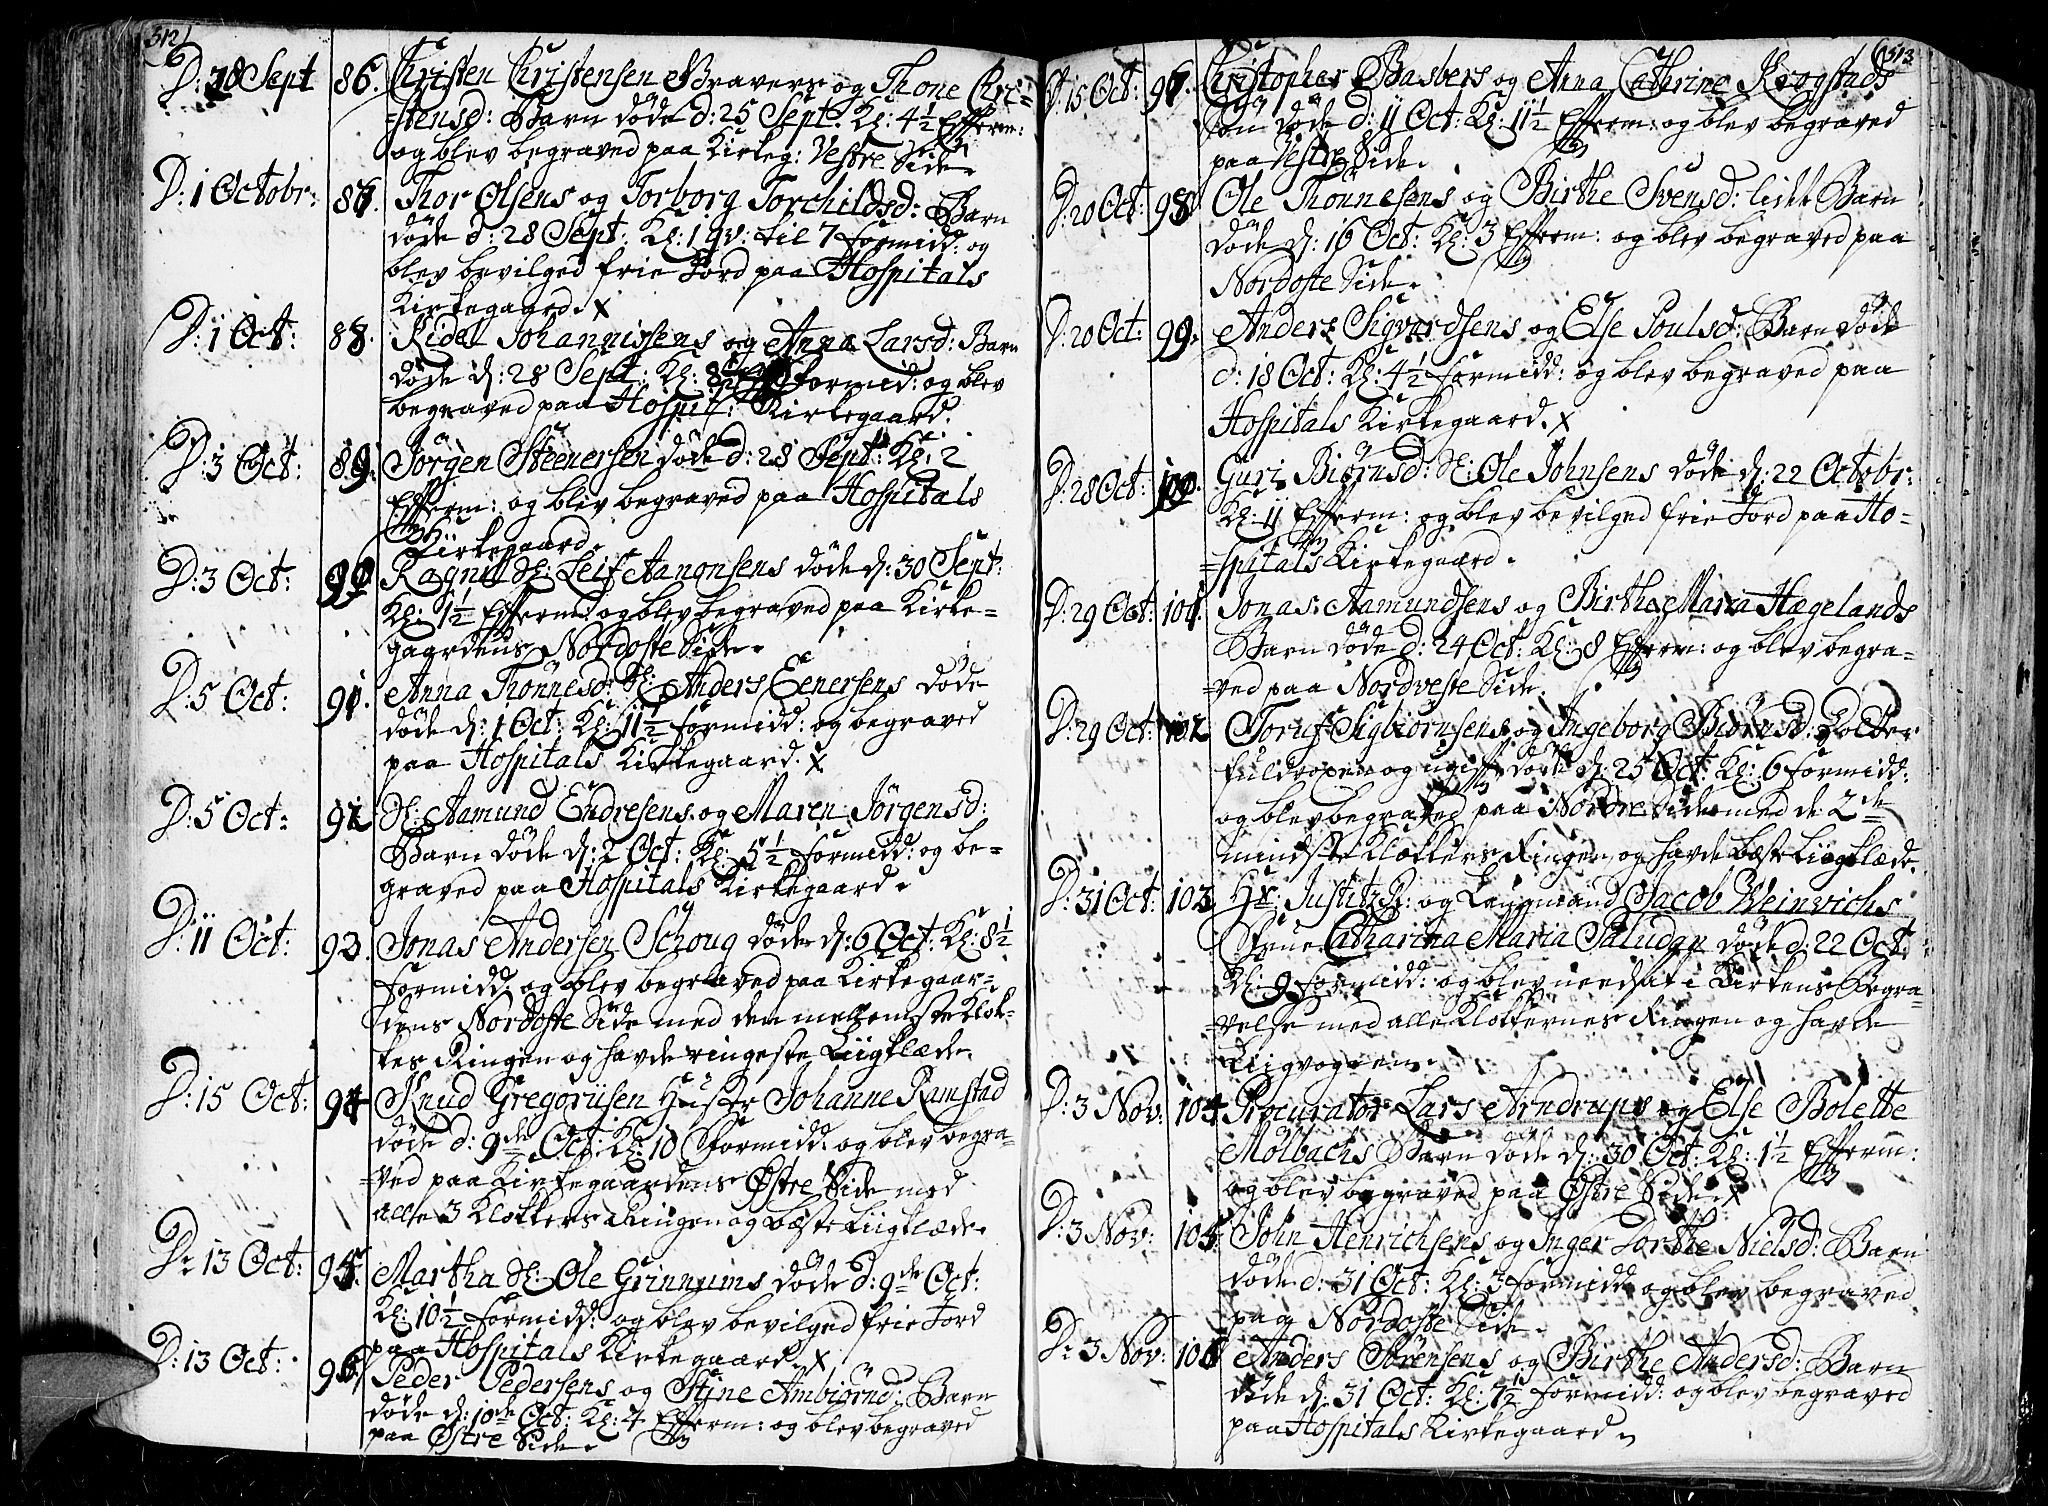 512
D: 28 Sept 86. Christen Christensen Gravers og Thone Chri-
=stensd: Barn døde d: 25 Sept: Kl: 4½ Efterm:
og blev begraved paa Kirkeg: Vestre Side.
D: 1 Octobr: 87. Thor Olsens og Torborg Torchildsd: Barn
døde d: 28 Sept: Kl: 1 qv: til 7 formidd: og
blev bevilged frie Jord paa Hospitals
Kirkegaard. X
D: 1 Oct: 88. Ridel Johannissens og Anna Larsd: Barn
døde d: 28 Sept: Kl: 8 formid: og blev
begraved paa Hospit: Kirkegaard.
D: 3 Oct: 89. Jørgen Steenersen døde d: 28 Sept: Kl: 2
Efterm: og blev begraved paa Hospitals
Kirkegaard.
D: 3 Oct: 90. Ragnil Sl: Leif Aanonsens døde d: 30 Sept:
Kl: 1½ Efterm: og blev begraved paa Kirke-
gaardens Nordoste Side.
D: 5 Oct: 91. Anna Thønnesd: Sl: Anders Eenersens døde
døde d: 1 Oct: Kl: 11½ formidd: og begraved
paa Hospitals Kirkegaard. X
D: 5 Oct: 92 Sl: Aamund Endresens og Maren Jørgensd:
Barn døde d: 2 Oct: Kl: 5½ formidd: og be-
graved paa Hospitals Kirkegaard.
D: 11 Oct: 93. Jonas Andersen Schoug døde d: 6 Oct: Kl: 8½
formidd: og blev begraved paa Kirkegaar-
dens Nordoste Side med den mellemste Klok-
kes Ringen og havde ringeste Liigklæde.
D: 15 Oct: 94 Knud Gregoriisen Hustr Johanne Ramstad
døde d: 9de Oct: Kl: 10 Formidd: og blev begra-
=ved paa Kirkegaardens Østre Side med
alle 3 Klokkers Ringen og bæste Liigklæde.
D: 13 Oct: 95. Martha Sl: Ole Grinnums døde d: 9de Oct:
Kl: 10½ formidd: og blev bevilged frie Jord
paa Hospitals Kirkegaard. X
D: 13 Oct: 96. Peder Pedersens og Stine Ambiørnd: Barn
døde d: 10de Oct: Kl: 4 Efterm: og blev begraved
paa Østre Side.
513
D: 15 Oct: 97. Christopher Basbers og Anna Cathrine Krogstads
Søn døde d: 11 Oct: Kl: 11½ Efterm: og blev begraved
paa Vestre Side.
D: 20 Oct: 98 Ole Thønnesens og Birthe Svensd: lidet Barn
døde d: 16 Oct: Kl: 3 Efterm: og blev begraved paa
Nordoste Side.
D: 20 Oct: 99. Anders Sigvardsens og Else Poulsd: Barn døde
d: 18 Oct: Kl: 4½ formidd: og blev begraved paa
Hospitals Kirkegaard. X
D: 28 Oct: 100. Guri Biørnsd: Sl: Ole Johnsens døde d: 22 Octobr:
Kl: 11 Efterm: og blev bevilged frie Jord paa Ho-
=spitals Kirkegaard.
D: 29 Oct: 101. Jonas Aamundsens og Birthe Maria Hægelands
Barn døde d: 24 Oct: Kl: 8 Efterm: og blev begra-
=ved paa Nordveste Side.
D: 29 Oct: 102 Toruf Sigbiørnsens og Ingeborg Biørnsd: Dotter
fuldvoxen og ugift døde d: 25 Oct: Kl: 6 formidd:
og blev begraved paa Nordre Side med de 2de
mindste Klokkers Ringen og havde bæste Liigklæde.
D: 31 Oct: 103 Hr: Justitz R: og Laugmand Jacob Weinvichs
Frue Catharina Maria Paludan døde d: 22 Oct:
Kl: 9 formidd: og blev needsat i Kirkens Begra-
=velse med alle Klokkernes Ringen og havde
Liigvognen.
D: 3 Nov: 104 Procurator Lars Arndrups og Else Bolette
Mølbachs Barn døde d: 30 Oct: Kl: 1½ Efterm:
og blev begraved paa Østre Side. X
D: 3 Nov: 105. John Henrichsens og Inger Dorthe Nielsd: Barn
døde d: 31 Oct: Kl: 3 formidd: og blev begraved
paa Nordoste Side.
D: 3 Nov: 106 Anders Sørensens og Birthe Andersd: Barn
døde d: 31 Oct: Kl: 7½ formidd: og blev begraved
paa Hospitals Kirkegaard.